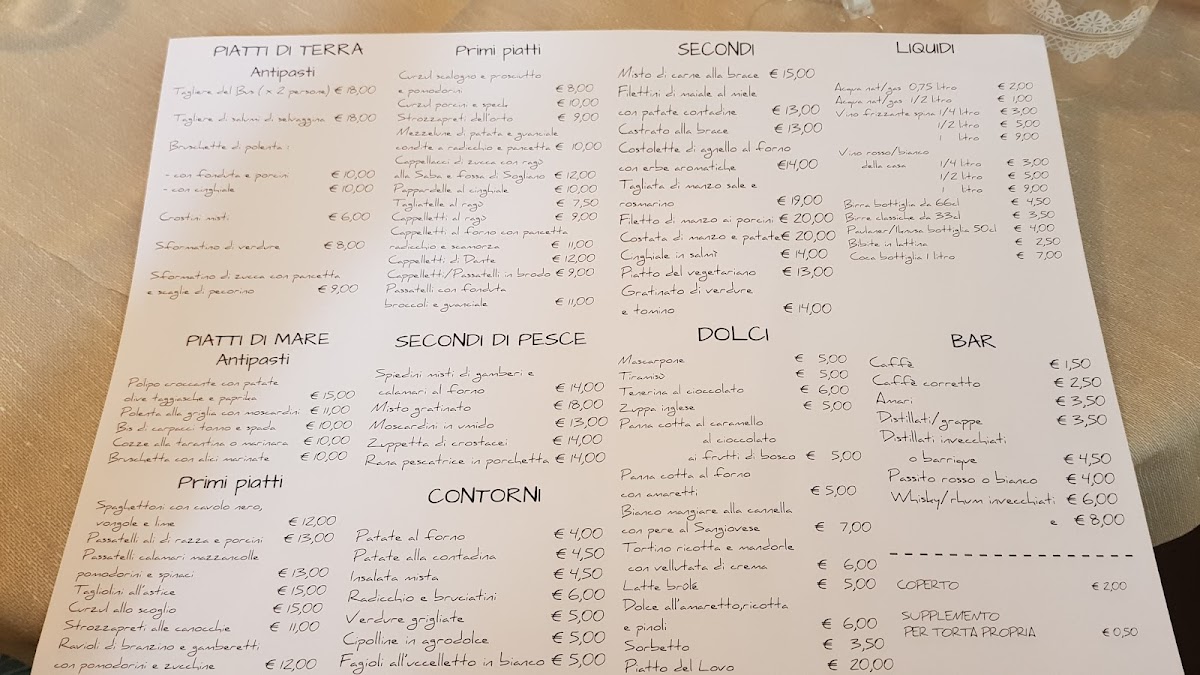 PIATTI DI TERRA
Antipasti
Tagliere del Bus ( x 2 persone) € 18,00
Tagliere di salumi di selvaggina € 18,00
Bruschette di polenta :
- con fonduta e porcini € 10,00
- con cinghiale € 10,00
Crostini misti € 6,00
Sformatino di verdure € 8,00
Sformatino di zucca con pancetta
e scaglie di pecorino € 9,00
Primi piatti
Curzul scalogno e prosciutto
e pomodorini € 8,00
Curzul porcini e speck € 10,00
Strozzapreti dell'orto € 9,00
Mezzelune di patata e guanciale
condite a radicchio e pancetta € 10,00
Cappellacci di zucca con ragù
alla Saba e fossa di Sogliano € 12,00
Pappardelle al cinghiale € 10,00
Tagliatelle al ragù € 7,50
Cappelletti al ragù € 9,00
Cappelletti al forno con pancetta
radicchio e scamorza € 11,00
Cappelletti di Dante € 12,00
Cappelletti/Passatelli in brodo € 9,00
Passatelli con fonduta
broccoli e guanciale € 11,00
SECONDI
Misto di carne alla brace € 15,00
Filettini di maiale al miele
con patate contadine € 13,00
Castrato alla brace € 13,00
Costolette di agnello al forno
con erbe aromatiche €14,00
Tagliata di manzo sale e
rosmarino € 19,00
Filetto di manzo ai porcini € 20,00
Costata di manzo e patate€ 20,00
Cinghiale in salmì € 14,00
Piatto del vegetariano € 13,00
Gratinato di verdure
e tomino € 14,00
LIQUIDI
Acqua nat/gas 0,75 litro € 2,00
Acqua nat/gas 1/2 litro € 1,00
Vino frizzante spina 1/4 litro € 3,00
1/2 litro € 5,00
1 litro € 9,00
Vino rosso/bianco
della casa 1/4 litro € 3,00
1/2 litro € 5,00
1 litro € 9,00
Birra bottiglia da 66cl € 4,50
Birre classiche da 33cl € 3,50
Paulaner/Ilnusa bottiglia 50cl € 4,00
Bibite in lattina € 2,50
Coca bottiglia 1 litro € 7,00
PIATTI DI MARE
Antipasti
Polipo croccante con patate
olive taggiasche e paprika € 15,00
Polenta alla griglia con moscardini € 11,00
Bis di carpacci tonno e spada € 10,00
Cozze alla tarantina o marinara € 10,00
Bruschetta con alici marinate € 10,00
Primi piatti
Spaghettoni con cavolo nero,
vongole e lime € 12,00
Passatelli ali di razza e porcini € 13,00
Passatelli calamari mazzancolle
pomodorini e spinaci € 13,00
Tagliolini all'astice € 15,00
Curzul allo scoglio € 15,00
Strozzapreti alle canocchie € 11,00
Ravioli di branzino e gamberetti
con pomodorini e zucchine € 12,00
SECONDI DI PESCE
Spiedini misti di gamberi e
calamari al forno € 14,00
Misto gratinato € 18,00
Moscardini in umido € 13,00
Zuppetta di crostacei € 14,00
Rana pescatrice in porchetta € 14,00
CONTORNI
Patate al forno € 4,00
Patate alla contadina € 4,50
Insalata mista € 4,50
Radicchio e bruciatini € 6,00
Verdure grigliate € 5,00
Cipolline in agrodolce € 5,00
Fagioli all'uccelletto in bianco € 5,00
DOLCI
Mascarpone € 5,00
Tiramisù € 5,00
Tenerina al cioccolato € 6,00
Zuppa inglese € 5,00
Panna cotta al caramello
al cioccolato
ai frutti di bosco € 5,00
Panna cotta al forno
con amaretti € 5,00
Bianco mangiare alla cannella
con pere al Sangiovese € 7,00
Tortino ricotta e mandorle
con vellutata di crema € 6,00
Latte brulé € 5,00
Dolce all'amaretto,ricotta
e pinoli € 6,00
Sorbetto € 3,50
Piatto del Lovo € 20,00
BAR
Caffè € 1,50
Caffè corretto € 2,50
Amari € 3,50
Distillati/grappe € 3,50
Distillati invecchiati
o barrique € 4,50
Passito rosso o bianco € 4,00
Whisky/rhum invecchiati € 6,00
e € 8,00
COPERTO € 2,00
SUPPLEMENTO
PER TORTA PROPRIA € 0,50